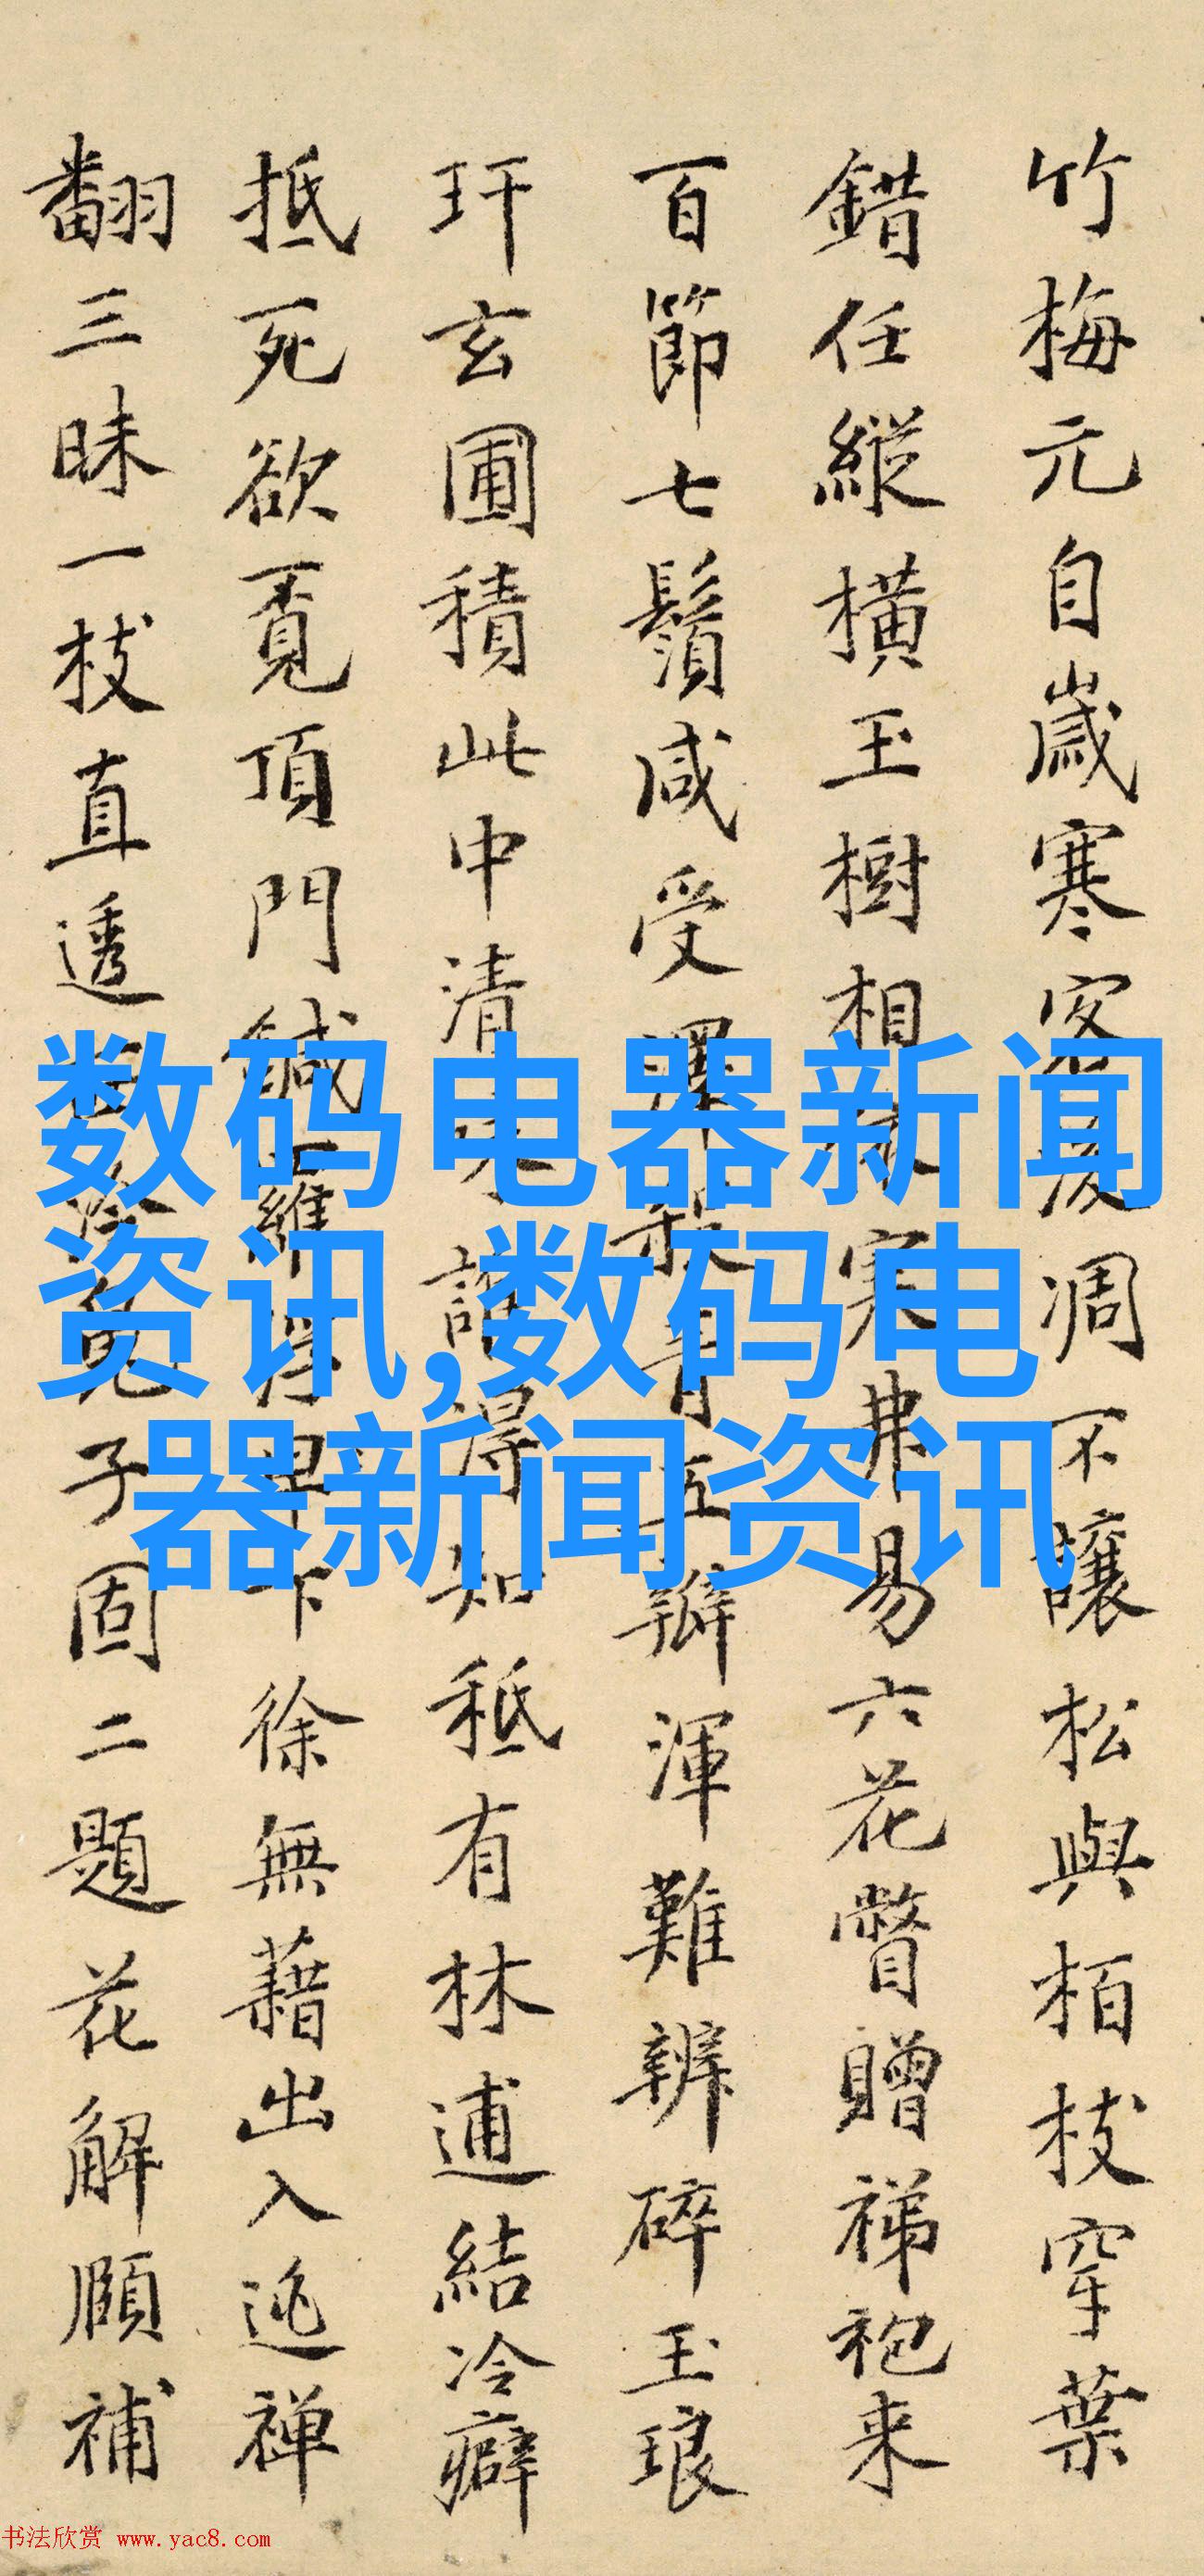 竹梅元自歲寒客後凋不讓松與栢枝穿葉
錯任縱橫玉樹相寒弗易六花瞥贈綈袍来
百節七鬚咸受青五瓣渾難辨碎玉琅
玕玄圃積此中清誰得知秪有林逋結冷癖
抵死欲覔頂門鍼羅浮下徐無藉出入逃禅
翻三昧一枝直透子固二題花解頤補
数码电器新闻
资讯,数码电
器新闻资讯
书法欣赏 www.yac8.com